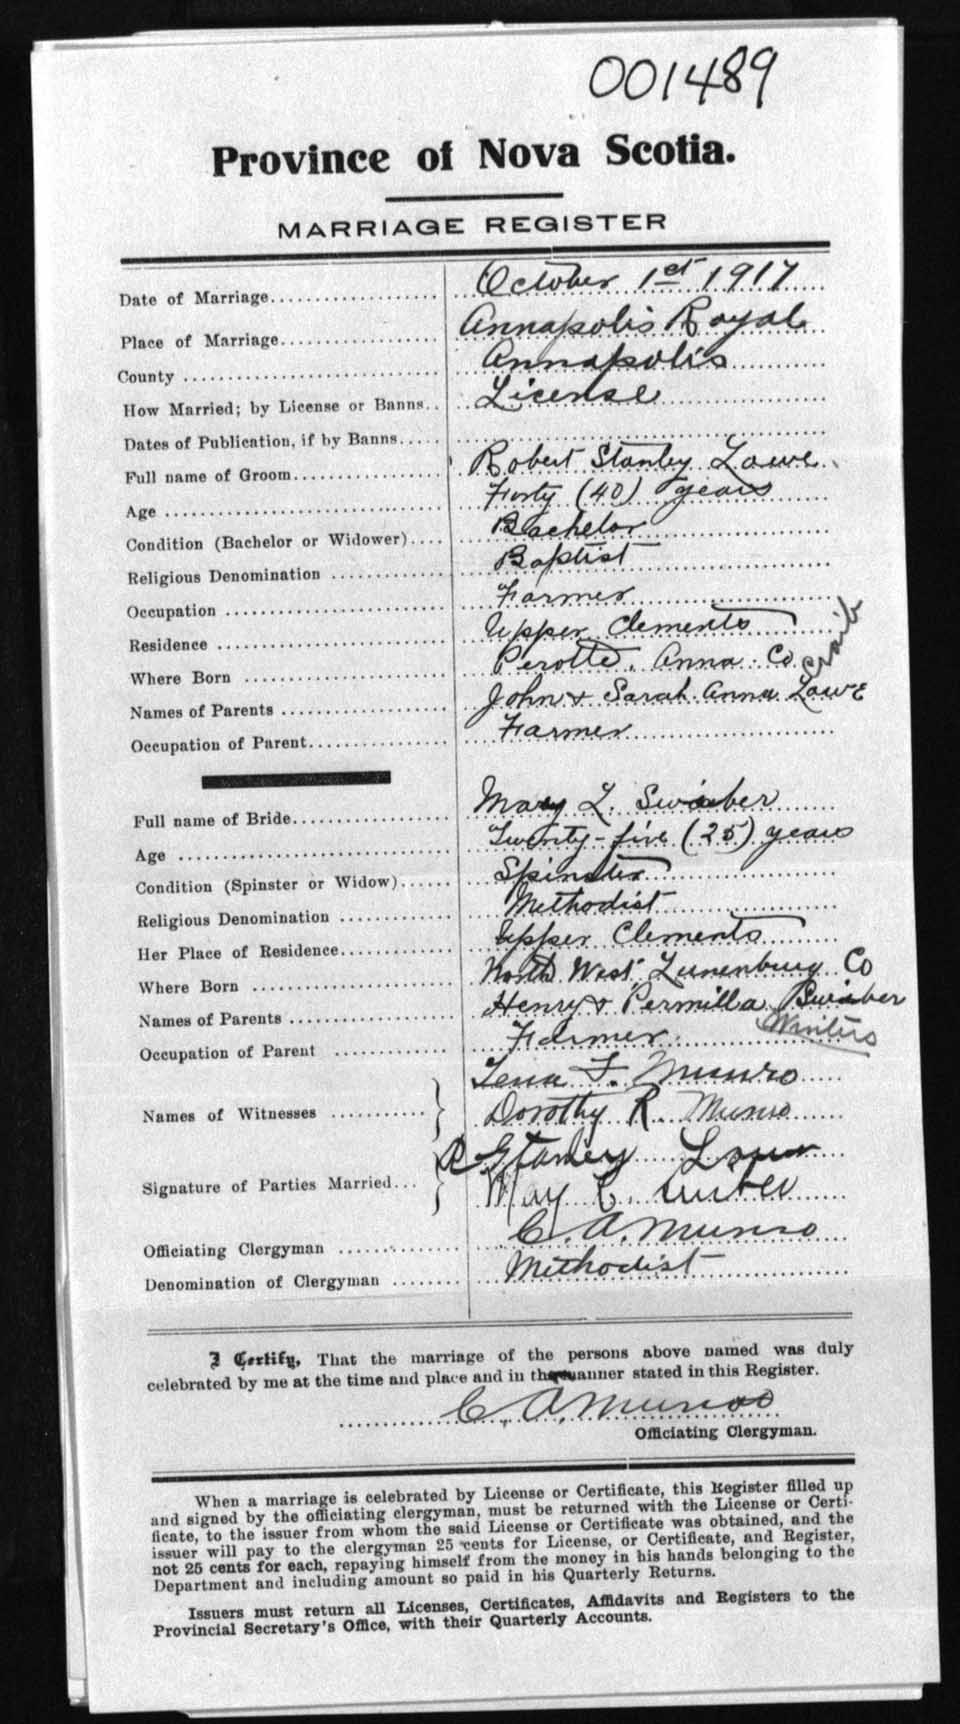 001489
Province of Nova Scotia.
MARRIAGE REGISTER
Date of Marriage October 1st 1917
Place of Marriage Annapolis Royal
County Annapolis
How Married; by License or Banns License
Dates of Publication, if by Banns
Full name of Groom Robert Stanley Lowe
Age Forty (40) years
Condition (Bachelor or Widower) Bachelor
Religious Denomination Baptist
Occupation Farmer
Residence Upper Clements
Where Born Perotte, Anna. Co
Names of Parents John & Sarah Anna Lowe
Occupation of Parent Farmer
Full name of Bride Mary L.
Age Twenty-five (25) years
Condition (Spinster or Widow) Spinster
Religious Denomination Methodist
Her Place of Residence Upper Clements
Where Born North West Lunenburg Co
Names of Parents Henry & Permilla
Winters
Occupation of Parent Farmer
Names of Witnesses Lena F. Munro
Dorothy R. Munro
Signature of Parties Married R Stanley Lowe
May
Officiating Clergyman C. A. Munro
Denomination of Clergyman Methodist
I Certify, That the marriage of the persons above named was duly
celebrated by me at the time and place and in the manner stated in this Register.
C. A. Munro
Officiating Clergyman.
When a marriage is celebrated by License or Certificate, this Register filled up
and signed by the officiating clergyman, must be returned with the License or Certi-
ficate, to the issuer from whom the said License or Certificate was obtained, and the
issuer will pay to the clergyman 25 cents for License, or Certificate, and Register,
not 25 cents for each, repaying himself from the money in his hands belonging to the
Department and including amount so paid in his Quarterly Returns.
Issuers must return all Licenses, Certificates, Affidavits and Registers to the
Provincial Secretary's Office, with their Quarterly Accounts.